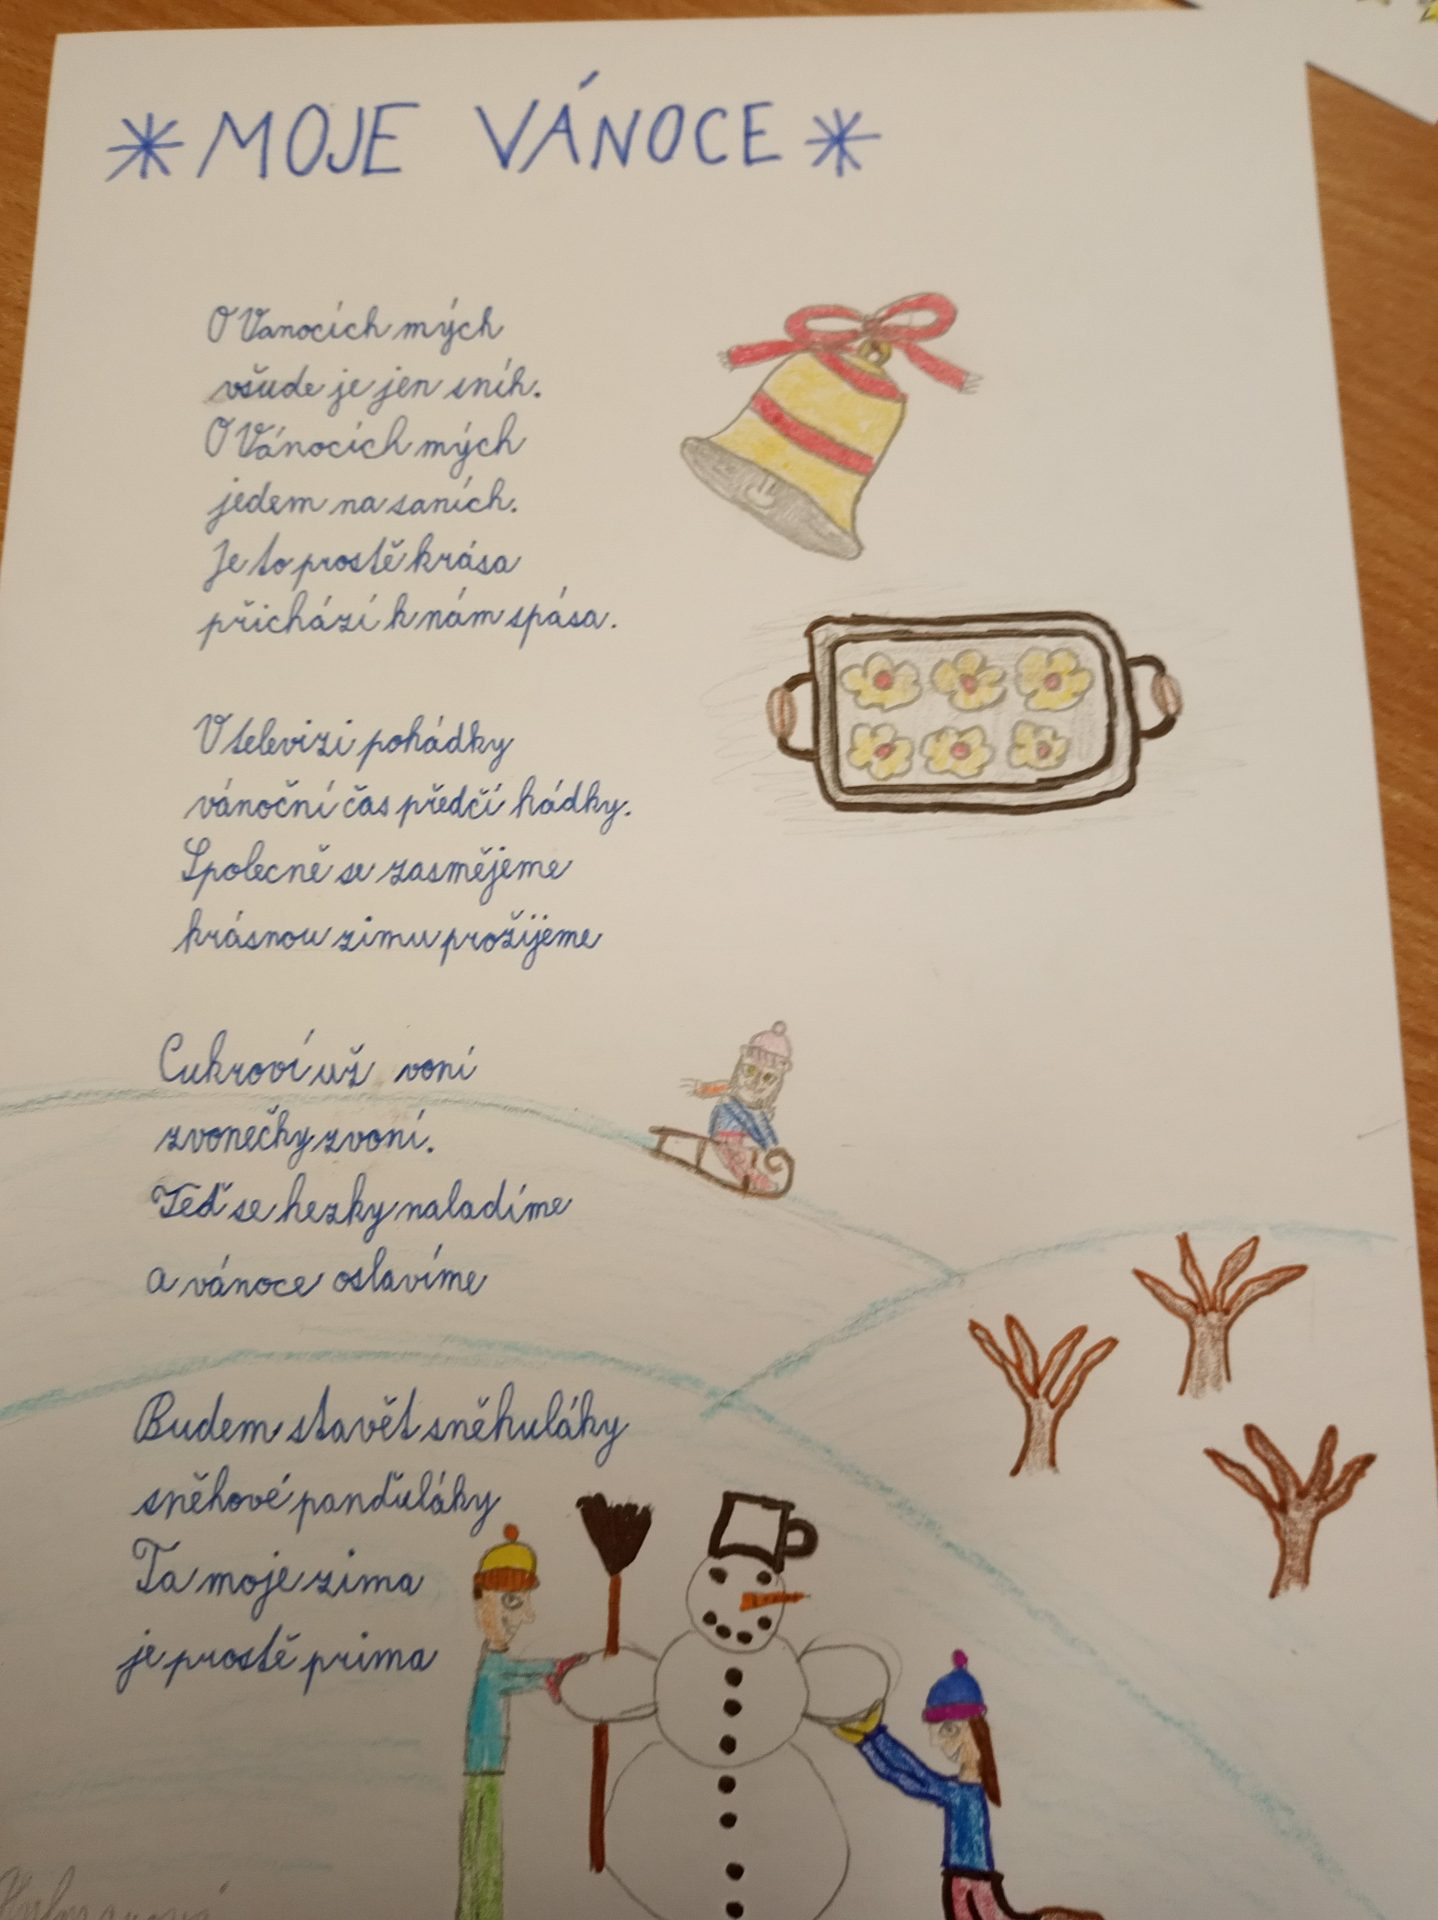 MOJE VÁNOCE
O Vanocích mých
všude je jen sníh.
O Vánocích mých
jedem na saních.
Je to prostě krása
přichází k nám spása.
V televizi pohádky
vánoční čas předčí hádky.
Společně se zasmějeme
krásnou zimu prožijeme
Cukroví už voní
zvonečky zvoní.
Teď se hezky naladíme
a vánoce oslavíme
Budem stavět sněhuláky
sněhové panďuláky
Ta moje zima
je prostě prima